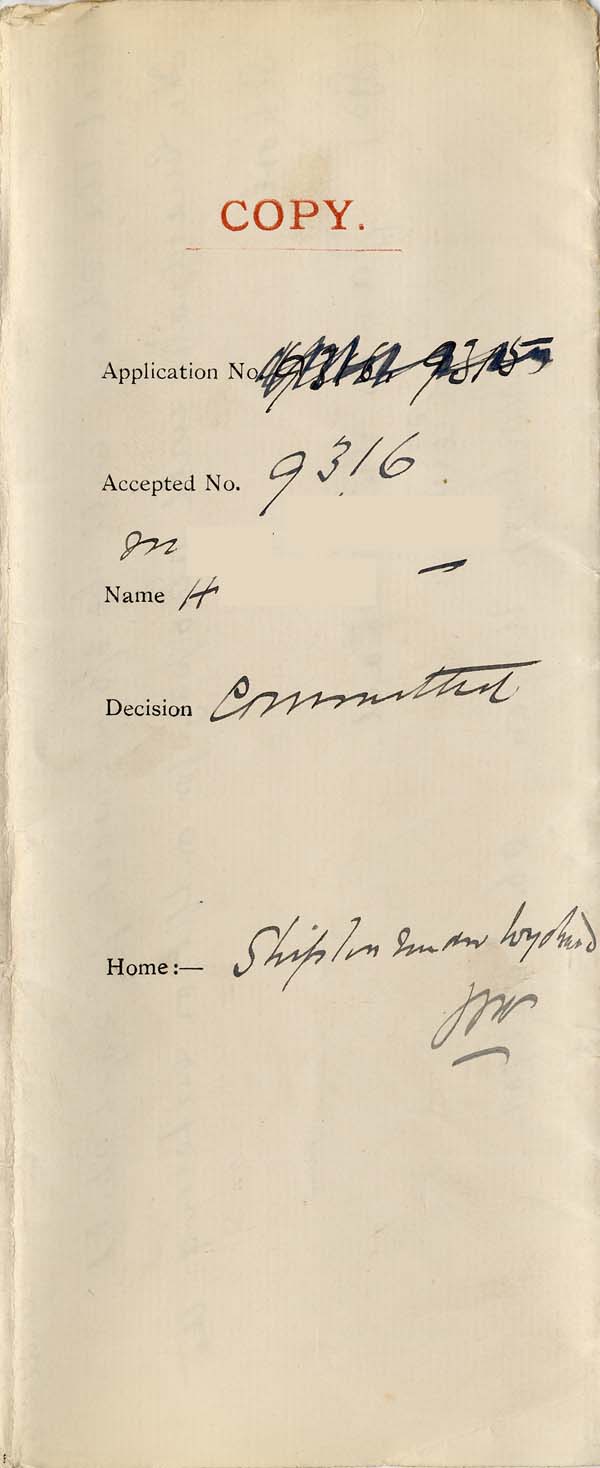 COPY.
Application No.
Accepted No. 9316
M
Name H
Decision Committed
Home:— Shipton under Wychwood